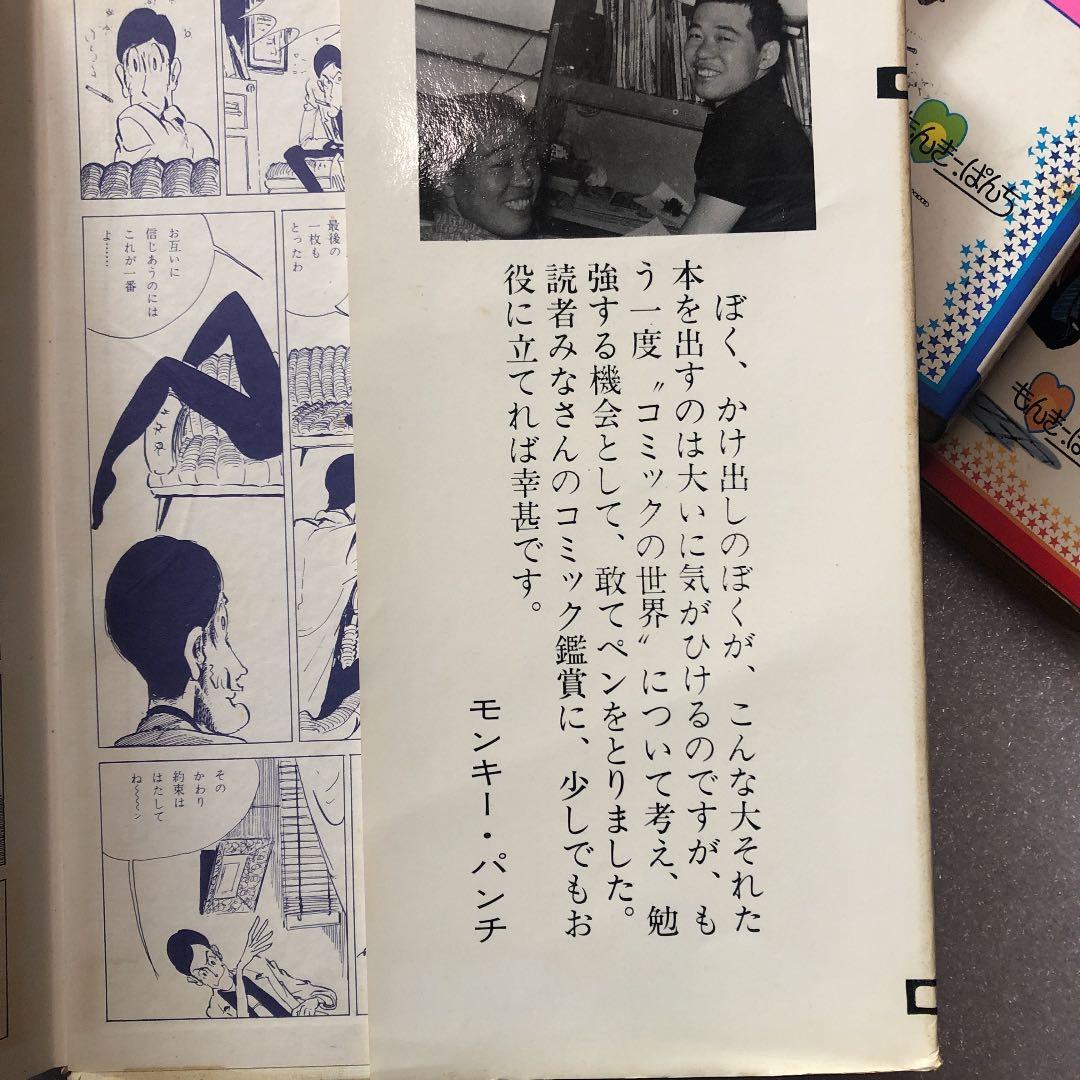 ぼく、かけ出しのぼくが、こんな大それた
本を出すのは大いに気がひけるのですが、も
う一度〝コミックの世界〟について考え、勉
強する機会として、敢てペンをとりました。
読者みなさんのコミック鑑賞に、少しでもお
役に立てれば幸甚です。
モンキー・パンチ
最後の
一枚も
とったわ
お互いに
信じあうのには
これが一番
よ……
その
かわり
約束は
はたして
ね～～ン
もんきー・ぱんち
もんきー・ぱ